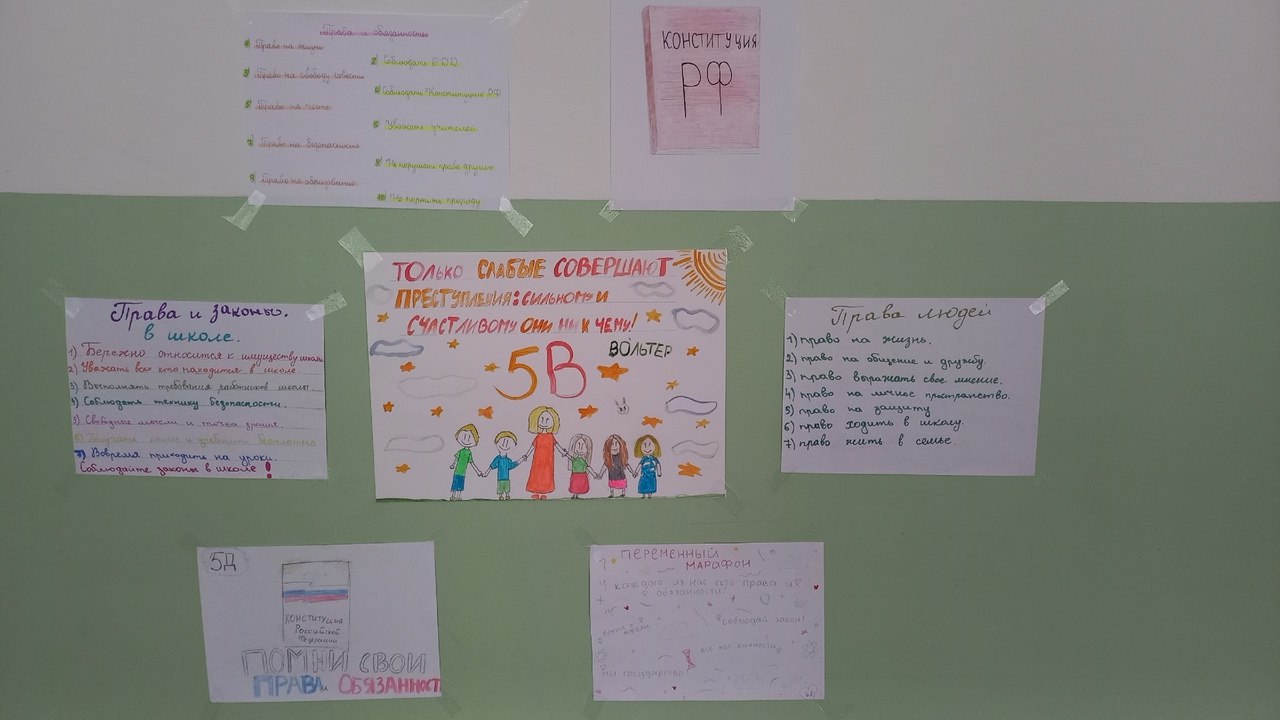 Права и обязанность
1) Право на жизнь
2) Соблюдать ПДД
3) Право на свободу совести
4) Соблюдать Конституцию РФ
5) Право на честь
6) Уважать учителей
7) Право на безопасность
8) Не нарушать права других
9) Право на образование
10) Не портить природу
КОНСТИТУЦИЯ
РФ
Права и законы.
в школе.
1) Бережно относится к имуществу школы
2) Уважать всех кто находится в школе.
3) Выполнять требования работников школы.
4) Соблюдать технику безопасности.
5) Свободные мысли и точка зрения.
6) Получать книги и учебники бесплатно
7) Вовремя приходить на уроки.
Соблюдайте законы в школе!
ТОЛЬКО СЛАБЫЕ СОВЕРШАЮТ
ПРЕСТУПЛЕНИЯ: СИЛЬНОМУ И
СЧАСТЛИВОМУ ОНИ НИ К ЧЕМУ!
5В
ВОЛЬТЕР
Права людей
1) право на жизнь.
2) право на общение и дружбу.
3) право выражать свое мнение.
4) право на личное пространство.
5) право на защиту
6) право ходить в школу.
7) право жить в семье.
5Д
КОНСТИТУЦИЯ
Российской
Федерации
ПОМНИ СВОИ
ПРАВА и ОБЯЗАННОСТ
ПЕРЕМЕННЫЙ
МАРАФОН
У каждаго из нас есть права и
обязанности!
соблюдай закон!
все мы личности
мы государство!